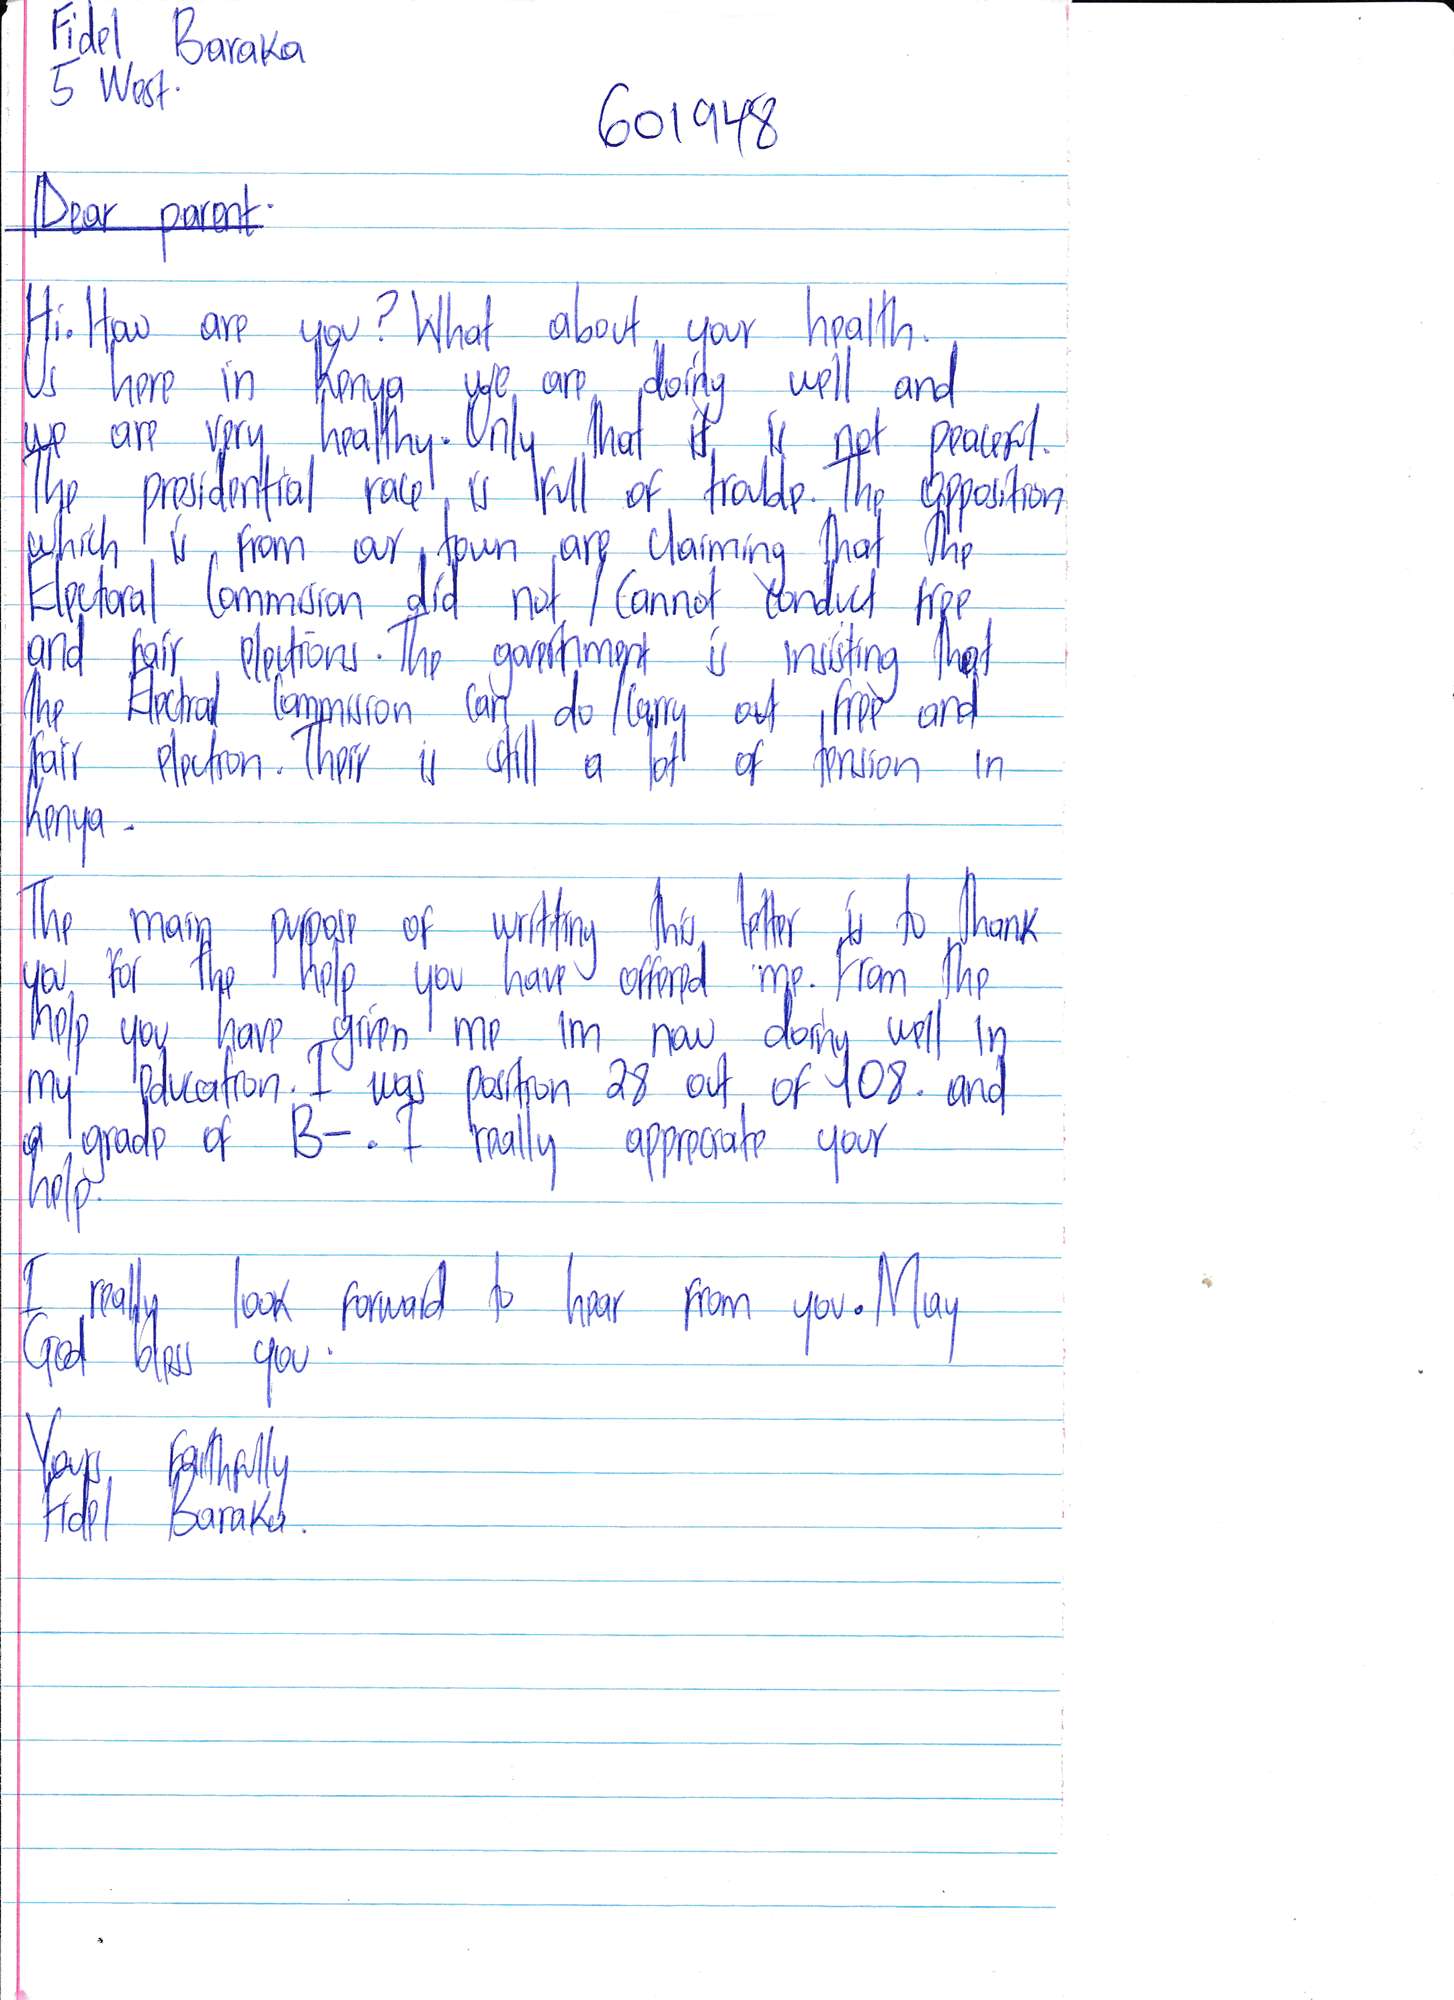 Fidel Baraka
5 West.
601948
Dear parent.
Hi. How are you? What about your health.
Us here in Kenya we are doing well and
we are very healthy. Only that it is not peaceful.
The presidential race is full of trouble. The opposition
which is from our town are claiming that the
Electoral Commission did not / cannot conduct free
and fair elections. The government is insisting that
the Electoral Commission can do / carry out free and
fair election. Their is still a lot of tension in
Kenya.
The main purpose of writting this letter is to thank
you for the help you have offered me. From the
help you have given me im now doing well in
my education. I was position 28 out of 108. and
a grade of B-. I really appreciate your
help.
I really look forward to hear from you. May
God bless you.
Yours faithfully
Fidel Baraka.